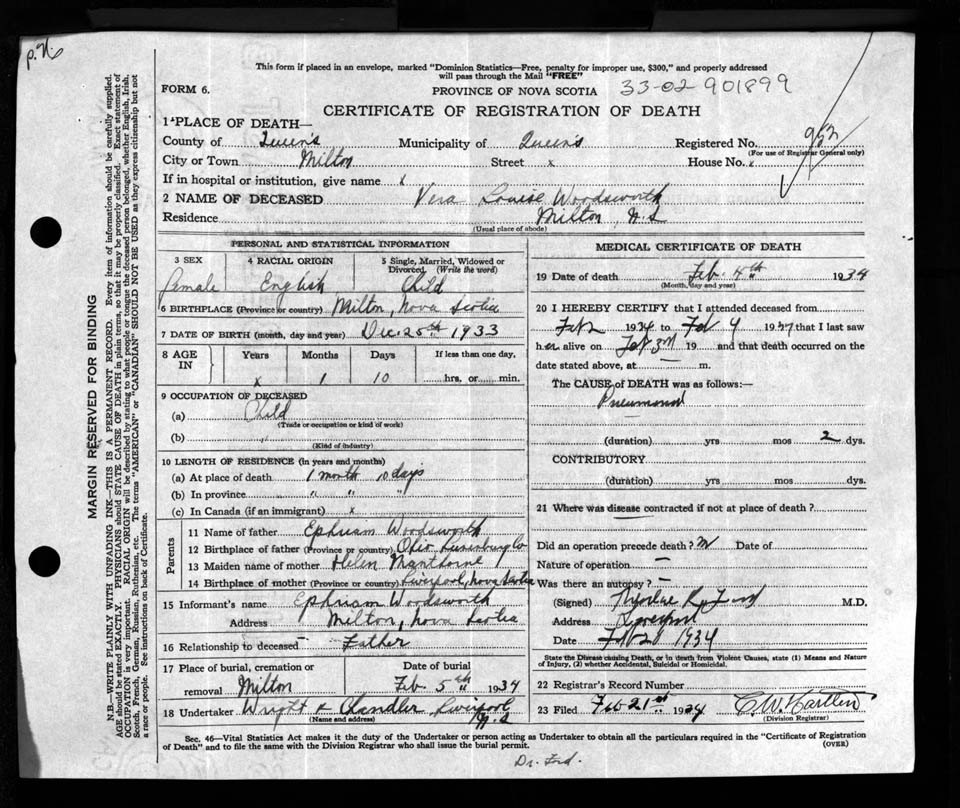 P.N.
This form if placed in an envelope, marked "Dominion Statistics—Free, penalty for improper use, $300," and properly addressed
will pass through the Mail "FREE"
FORM 6.
PROVINCE OF NOVA SCOTIA 33-02-901899
CERTIFICATE OF REGISTRATION OF DEATH
1 PLACE OF DEATH—
County of Queen's Municipality of Queen's Registered No. 953
(For use of Registrar General only)
City or Town Milton Street x House No. x
If in hospital or institution, give name x
2 NAME OF DECEASED Vera Louise Woodsworth
Residence Milton, N.S
(Usual place of abode)
PERSONAL AND STATISTICAL INFORMATION
3 SEX 4 RACIAL ORIGIN 5 Single, Married, Widowed or
Divorced (Write the word)
Female English Child
6 BIRTHPLACE (Province or country) Milton, Nova Scotia
7 DATE OF BIRTH (month, day and year) Dec. 25th 1933
8 AGE IN Years Months Days If less than one day,
x 1 10 hrs. or min.
9 OCCUPATION OF DECEASED
(a) Child
(Trade or occupation or kind of work)
(b) "
(Kind of industry)
10 LENGTH OF RESIDENCE (in years and months)
(a) At place of death 1 month 10 days
(b) In province " " "
(c) In Canada (if an immigrant) x
Parents
11 Name of father Ephriam Woodsworth
12 Birthplace of father (Province or country) Ohio Lunenburg Co
13 Maiden name of mother Helen Manthorne
14 Birthplace of mother (Province or country) Liverpool, Nova Scotia
15 Informant's name Ephriam Woodsworth
Address Milton, Nova Scotia
16 Relationship to deceased Father
17 Place of burial, cremation or Date of burial
removal Milton Feb 5th 1934
18 Undertaker Wright & Chandler, Liverpool
(Name and address) N.S
MEDICAL CERTIFICATE OF DEATH
19 Date of death Feb. 4th 1934
(Month, day and year)
20 I HEREBY CERTIFY that I attended deceased from
Feb 2 1934 to Feb 4 1934 that I last saw
her alive on Feb 3rd 19 and that death occurred on the
date stated above, at — m.
The CAUSE of DEATH was as follows:—
Pneumonia
(duration) yrs mos 2 dys.
CONTRIBUTORY
(duration) yrs mos dys.
21 Where was disease contracted if not at place of death?
Did an operation precede death? Date of
Nature of operation —
Was there an autopsy? —
(Signed) M.D.
Address Liverpool
Date 1934
State the Disease causing Death, or in death from Violent Causes, state (1) Means and Nature
of Injury, (2) whether Accidental, Suicidal or Homicidal.
22 Registrar's Record Number
23 Filed Feb 21st 1934
(Division Registrar)
Sec. 46—Vital Statistics Act makes it the duty of the Undertaker or person acting as Undertaker to obtain all the particulars required in the "Certificate of Registration
of Death" and to file the same with the Division Registrar who shall issue the burial permit. (OVER)
Dr. Ford.
MARGIN RESERVED FOR BINDING
N.B.—WRITE PLAINLY WITH UNFADING INK—THIS IS A PERMANENT RECORD. Every item of information should be carefully supplied.
AGE should be stated EXACTLY. PHYSICIANS should STATE CAUSE OF DEATH in plain terms, so that it may be properly classified. Exact statement of
OCCUPATION is very important. RACIAL ORIGIN will be described by stating to what people or tongue the deceased person belonged, whether English, Irish,
Scotch, French, German, Russian, Ruthenian, etc. The terms "AMERICAN" or "CANADIAN" SHOULD NOT BE USED as they express citizenship but not
a race or people. See instructions on back of Certificate.